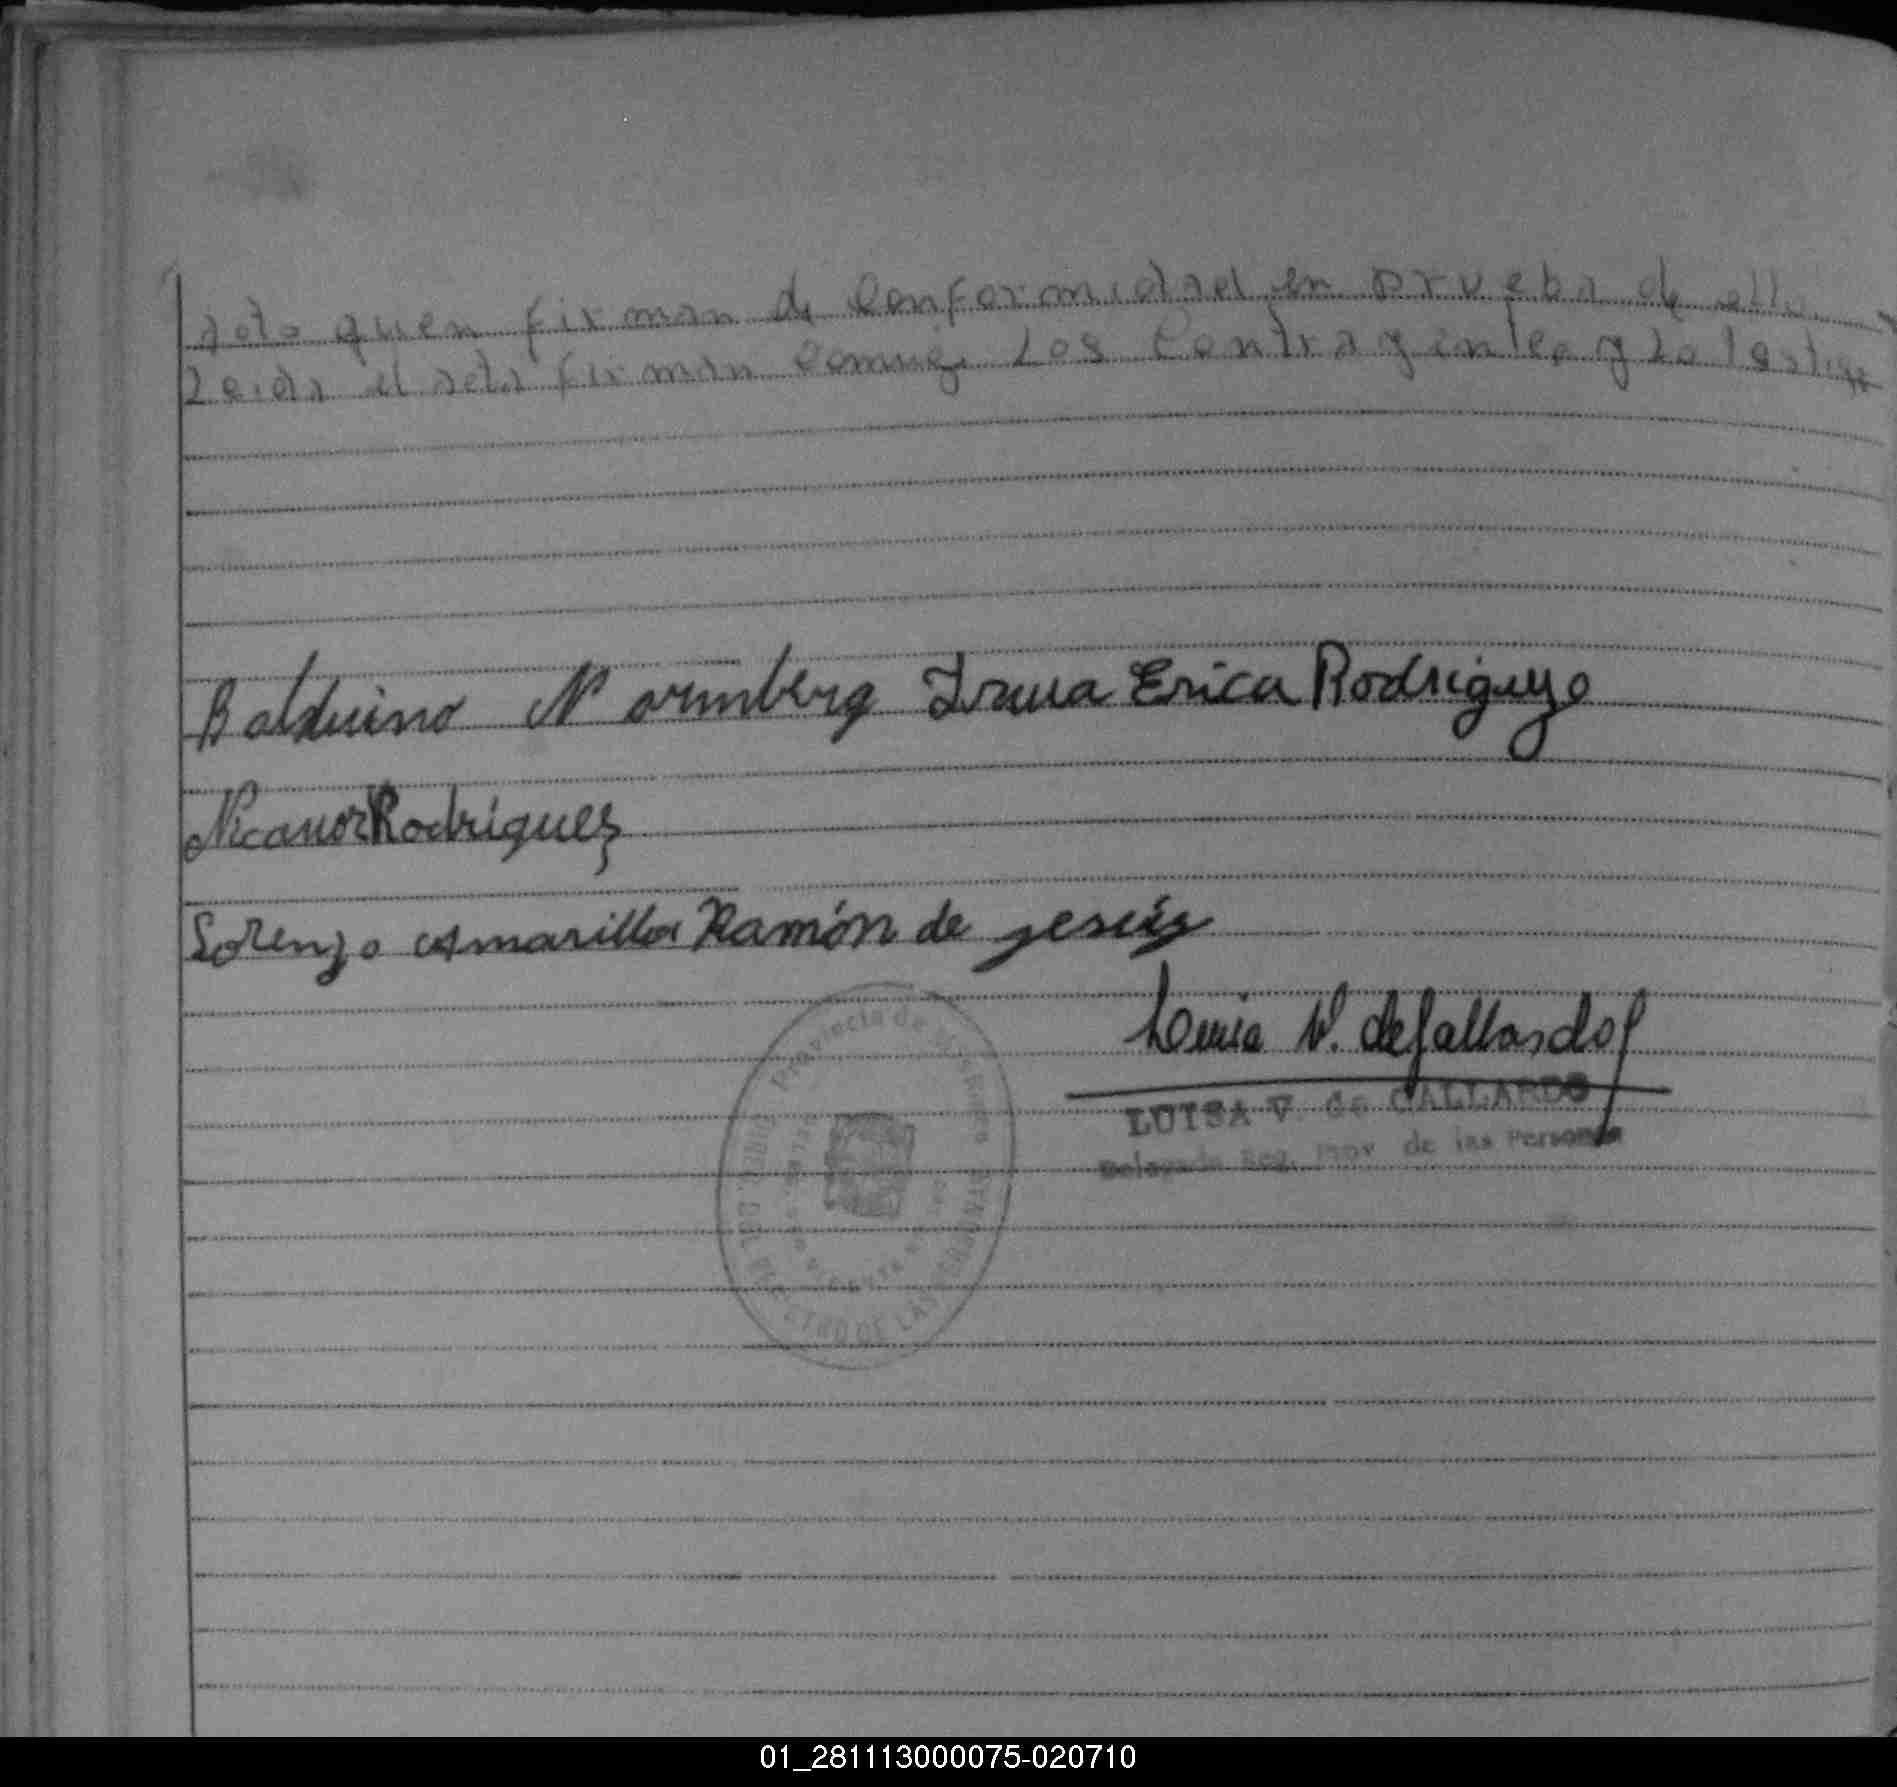 acto quien firman de Conformidad en prueba de ello
Leida el acta firman Conmigo Los Contrayentes y Lo testigo
Balduino Normberg Irma Erica Rodriguez
Nicanor Rodriguez
Lorenzo Amarilla Ramón de jesús
Luisa V. de Gallardo
LUISA V. de GALLARDO
Delegada Reg. Prov de las Personas
Provincia de Misiones
REGISTRO DE LAS PERSONAS
01_281113000075-020710